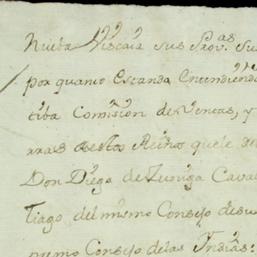 Nueba Viscaia sus Prov.as su
por quanto estando entendiendo
tiba Comission de Ventas, y
rras destos Reinos que le
Don Diego de Zuniga Cava
tiago del mismo Consejo de su
premo Consejo de las Indias